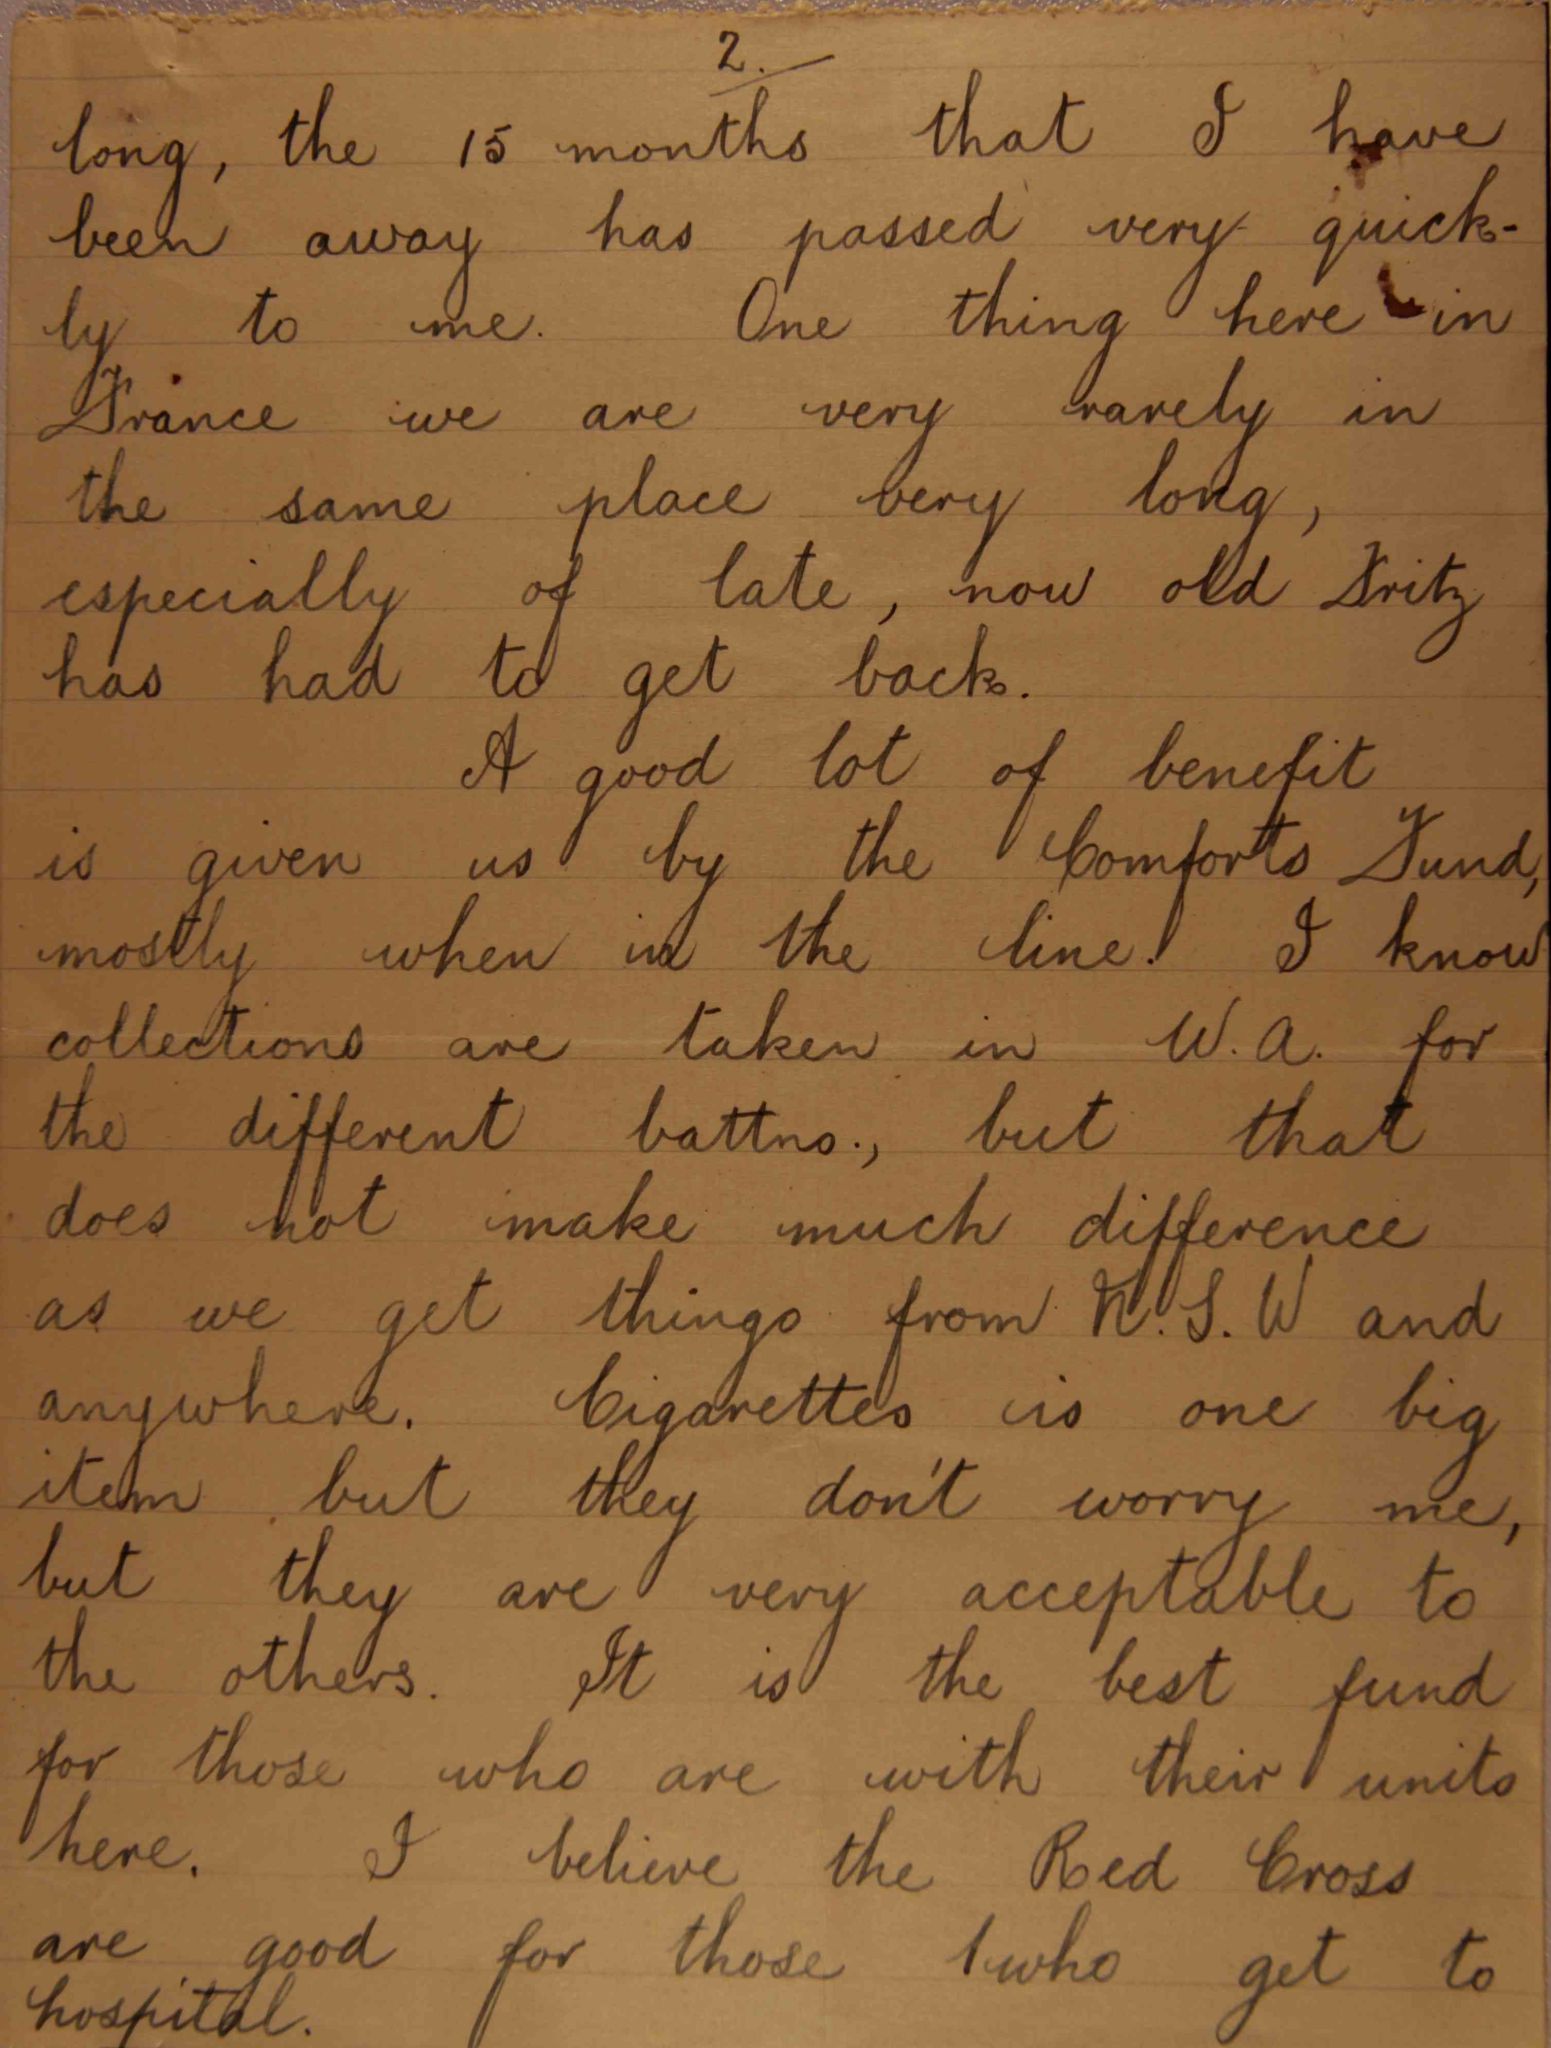 2.
long, the 15 months that I have
been away has passed very quick-
ly to me. One thing here in
France we are very rarely in
the same place very long,
especially of late, now old Fritz
has had to get back.
A good lot of benefit
is given us by the Comforts Fund,
mostly when in the line. I know
collections are taken in W.A. for
the different battns., but that
does not make much difference
as we get things from N.S.W and
anywhere. Cigarettes is one big
item but they don't worry me,
but they are very acceptable to
the others. It is the best fund
for those who are with their units
here. I believe the Red Cross
are good for those who get to
hospital.